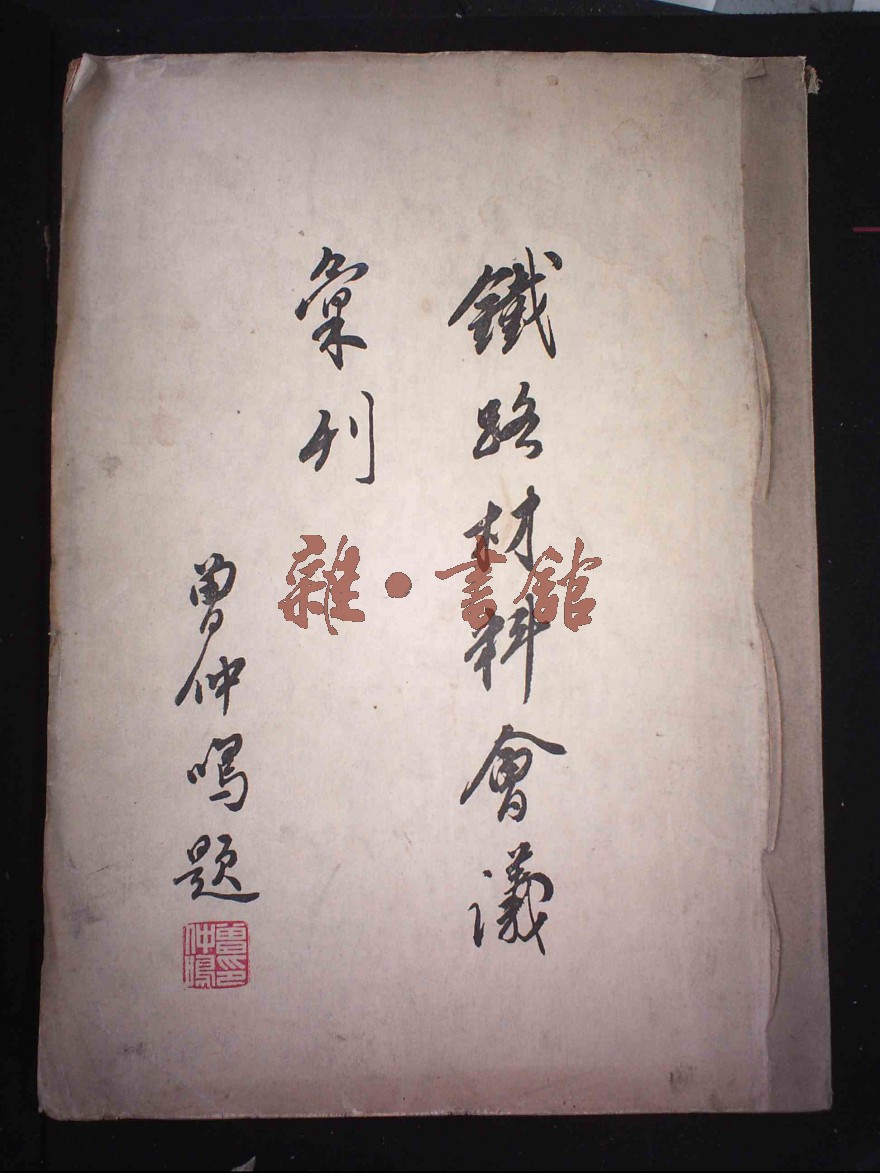 鐵路材料會議
彙刊
曾仲鳴題
曾仲鳴印
雜·書館